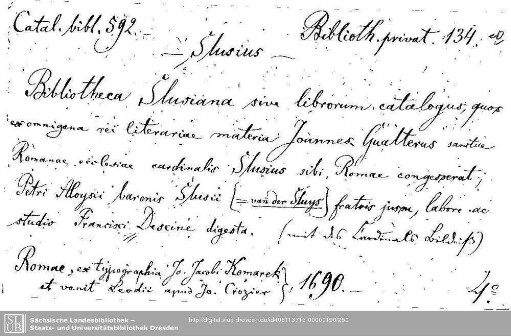 Catal. bibl. 592. Biblioth. privat 134.
— Slusius —
Bibliotheca Slusiana sive librorum catalogus, quos
ex omnigena rei literariae materia Joannes Gualterus sanctae
Romanae ecclesiae cardinalis Slusius sibi, Romae congesserat,
Petri Aloysii baronis Slusii [= van der Sluys] fratris jussu, labore ac
studio Francisci Deseine digesta. (mit des Cardinals Bildniß)
Romae, ex typographia Jo. Jacobi Komarek
et venit Leodii apud Jo. Crozier}, 1690. — 4°
Sächsische Landesbibliothek –
Staats- und Universitätsbibliothek Dresden